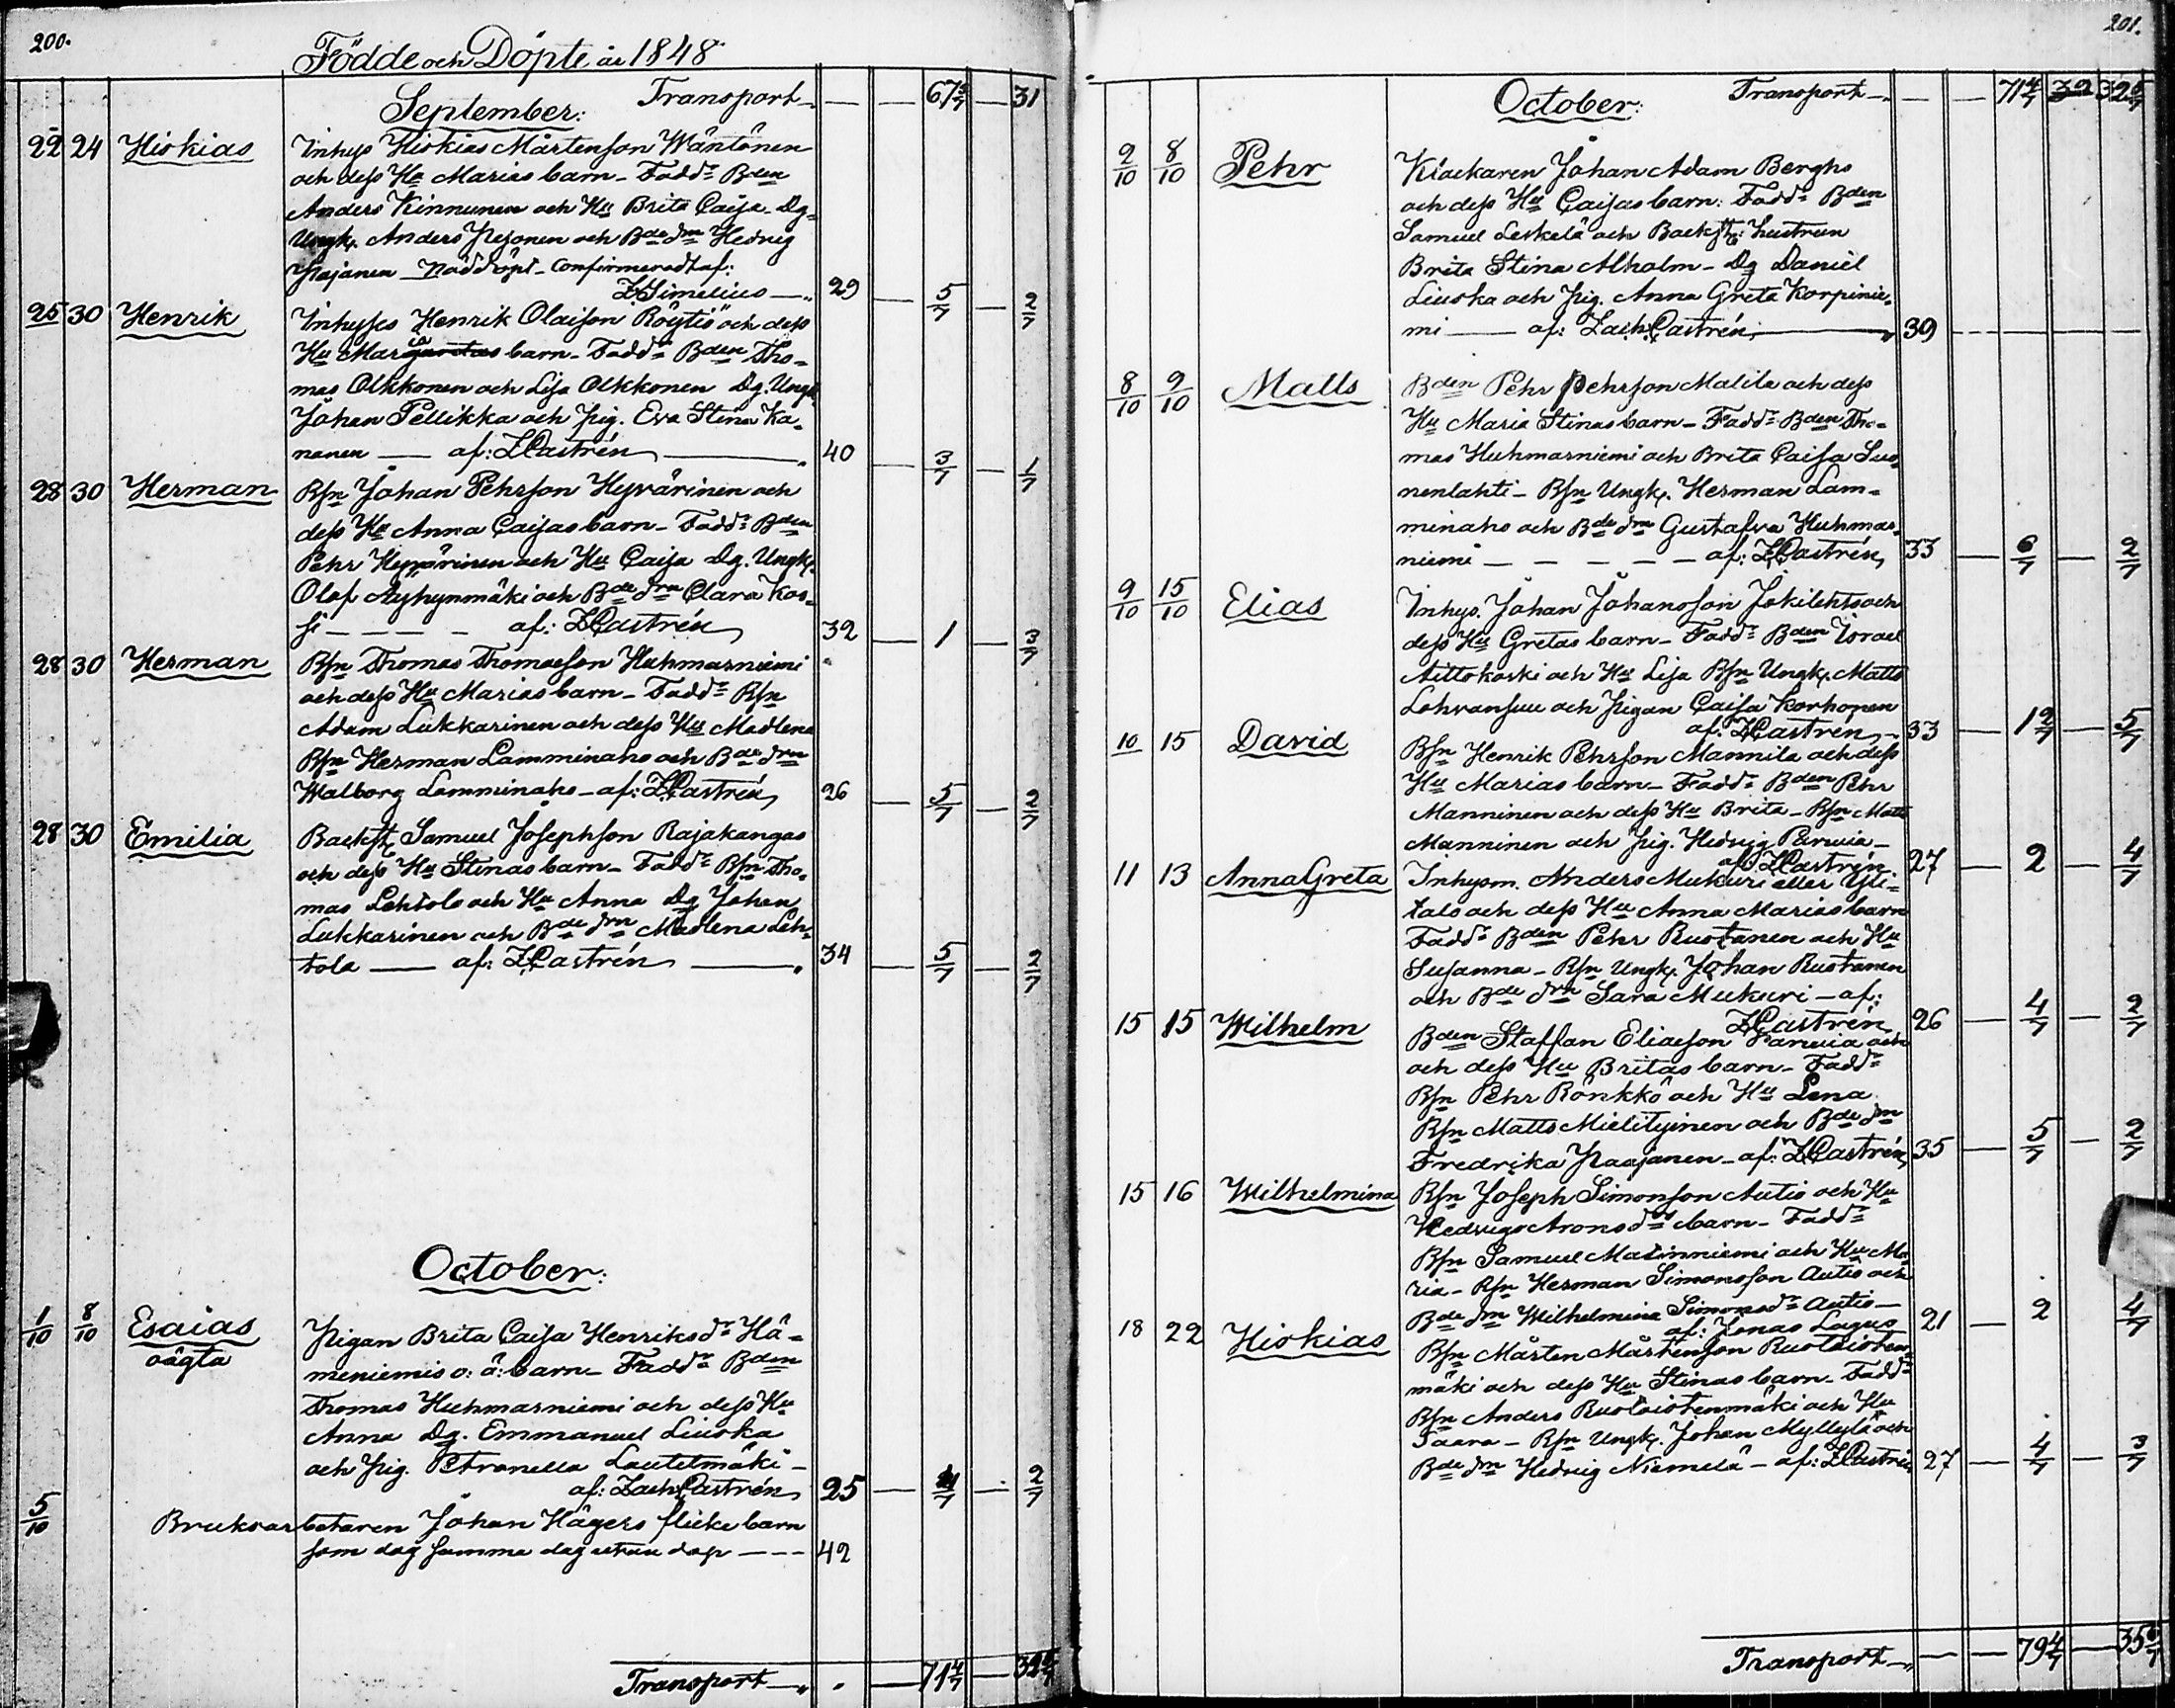 200.
Födde och Döpte år 1848
September: Transport — — 67 5/7 — 31
22 24 Hiskias Inhys Hiskias Mårtensson Wäntönen
och dess Hu Marias barn - Fadd: Bden
Anders Kinnunen och Hu Brita Caisa - Dg
Ungk. Anders Pesonen och Bde dm Hedvig
Pajanen - Nöddöpt - Confirmeradt af:
Z. Simelius — 29 — 5/7 — 2/7
25 30 Henrik Inhyses Henrik Olaisson Röytiö och dess
Hu Marias barn - Fadd: Bden Tho-
mas Olkkonen och Lisa Olkkonen Dg. Ungk.
Johan Pellikka och pig. Eva Stina Ka-
nanen — af: Z Castrén 40 — 3/7 — 1/7
28 30 Herman Bsn Johan Pehrsson Hyvärinen och
dess Hu Anna Caisas barn - Fadd: Bden
Pehr Hyvärinen och Hu Caisa Dg. Ungk.
Olof Äyhynmäki och Bde dm Clara Kos-
si - - - - af: Z Castrén 32 — 1 — 3/7
28 30 Herman Bsn Thomas Thomasson Huhmarniemi
och dess Hu Marias barn - Fadd: Bsn
Adam Lukkarinen och dess Hu Madlena
Bsn Herman Lamminaho och Bde dm
Walborg Lamminaho - af: Z Castrén 26 — 5/7 — 2/7
28 30 Emilia Backst Samuel Josephsson Rajakangas
och dess Hu Stinas barn - Fadd: Bsn Tho-
mas Lehtola och Hu Anna Dg Johan
Lukkarinen och Bde dm Madlena Leh-
tola — af: Z Castrén — 34 — 5/7 — 2/7
October:
1/10 8/10 Esaias Pigan Brita Caisa Henriksdr Hä-
oägta meniemis o: ä: barn - Fadd: Bden
Thomas Huhmarniemi och dess Hu
Anna Dg. Emmanuel Liuska
och pig. Petronella Lautetmäki -
af: Zach Castrén 25 — 4/7 — 2/7
5/10 Bruksarbetaren Johan Hägers flicke barn
som dog samma dag utan dop - - - 42
Transport — — 71 4/7 — 32 5/7
201.
October: Transport — — 71 4/7 32 32 5/7
2/10 8/10 Pehr Klockaren Johan Adam Berghs
och dess Hu Caisas barn: Fadd: Bden
Samuel Leskelä och Backst: hustrun
Brita Stina Alholm - Dg Daniel
Liuska och pig. Anna Greta Korpinie-
mi — af: Zach. Castrén 39
8/10 9/10 Matts Bden Pehr Pehrsson Malila och dess
Hu Maria Stinas barn - Fadd: Bden Tho-
mas Huhmarniemi och Brita Caisa Suo-
nenlahti - Bsn Ungk. Herman Lam-
minaho och Bde dm Gustafva Huhmar-
niemi - - - - - af: Z Castrén 33 — 6/7 — 2/7
9/10 15/10 Elias Inhys. Johan Johansson Jokilehto och
dess Hu Gretas barn - Fadd: Bden Israel
Aittokoski och Hu Lisa Bsn Ungk. Matts
Lohvansuu och Pigan Caisa Korhonen
af: Z Castrén 33 — 1 2/7 — 5/7
10 15 David Bsn Henrik Pehrsson Mannila och dess
Hu Marias barn - Fadd: Bden Pehr
Manninen och dess Hu Brita - Bsn Matts
Manninen och pig. Hedvig Parvia -
af: Z Castrén 27 — 2 — 4/7
11 13 Anna Greta Inhysm. Anders Mukuri eller Yli-
talo och dess Hu Anna Marias barn
Fadd: Bden Pehr Rustanen och Hu
Susanna - Bsn Ungk. Johan Rustanen
och Bde dm Sara Mukuri - af:
Z Castrén 26 — 4/7 — 2/7
15 15 Wilhelm Bden Staffan Eliasson Parvia och
och dess Hu Britas barn - Fadd:
Bsn Pehr Rönkkö och Hu Lena
Bsn Matts Mielityinen och Bde dm
Fredrika Paajanen - af: Z Castrén 35 — 5/7 — 2/7
15 16 Wilhelmina Bsn Joseph Simonsson Autio och Hu
Hedvigs Aronsdrs barn - Fadd:
Bsn Samuel Matinniemi och Hu Ma-
ria - Bsn Herman Simonsson Autio och
Bde dm Wilhelmina Simonsdr Autio -
af: Jonas Lagus 21 — 2 4/7
18 22 Hiskias Bsn Mårten Mårtensson Ruotoisten-
mäki och dess Hu Stinas barn - Fadd:
Bsn Anders Ruotoistenmäki och Hu
Saara - Bsn Ungk. Johan Myllylä och
Bde dm Hedvig Niemelä - af: Z Castrén 27 — 4/7 — 3/7
Transport — — 79 4/7 — 35 6/7